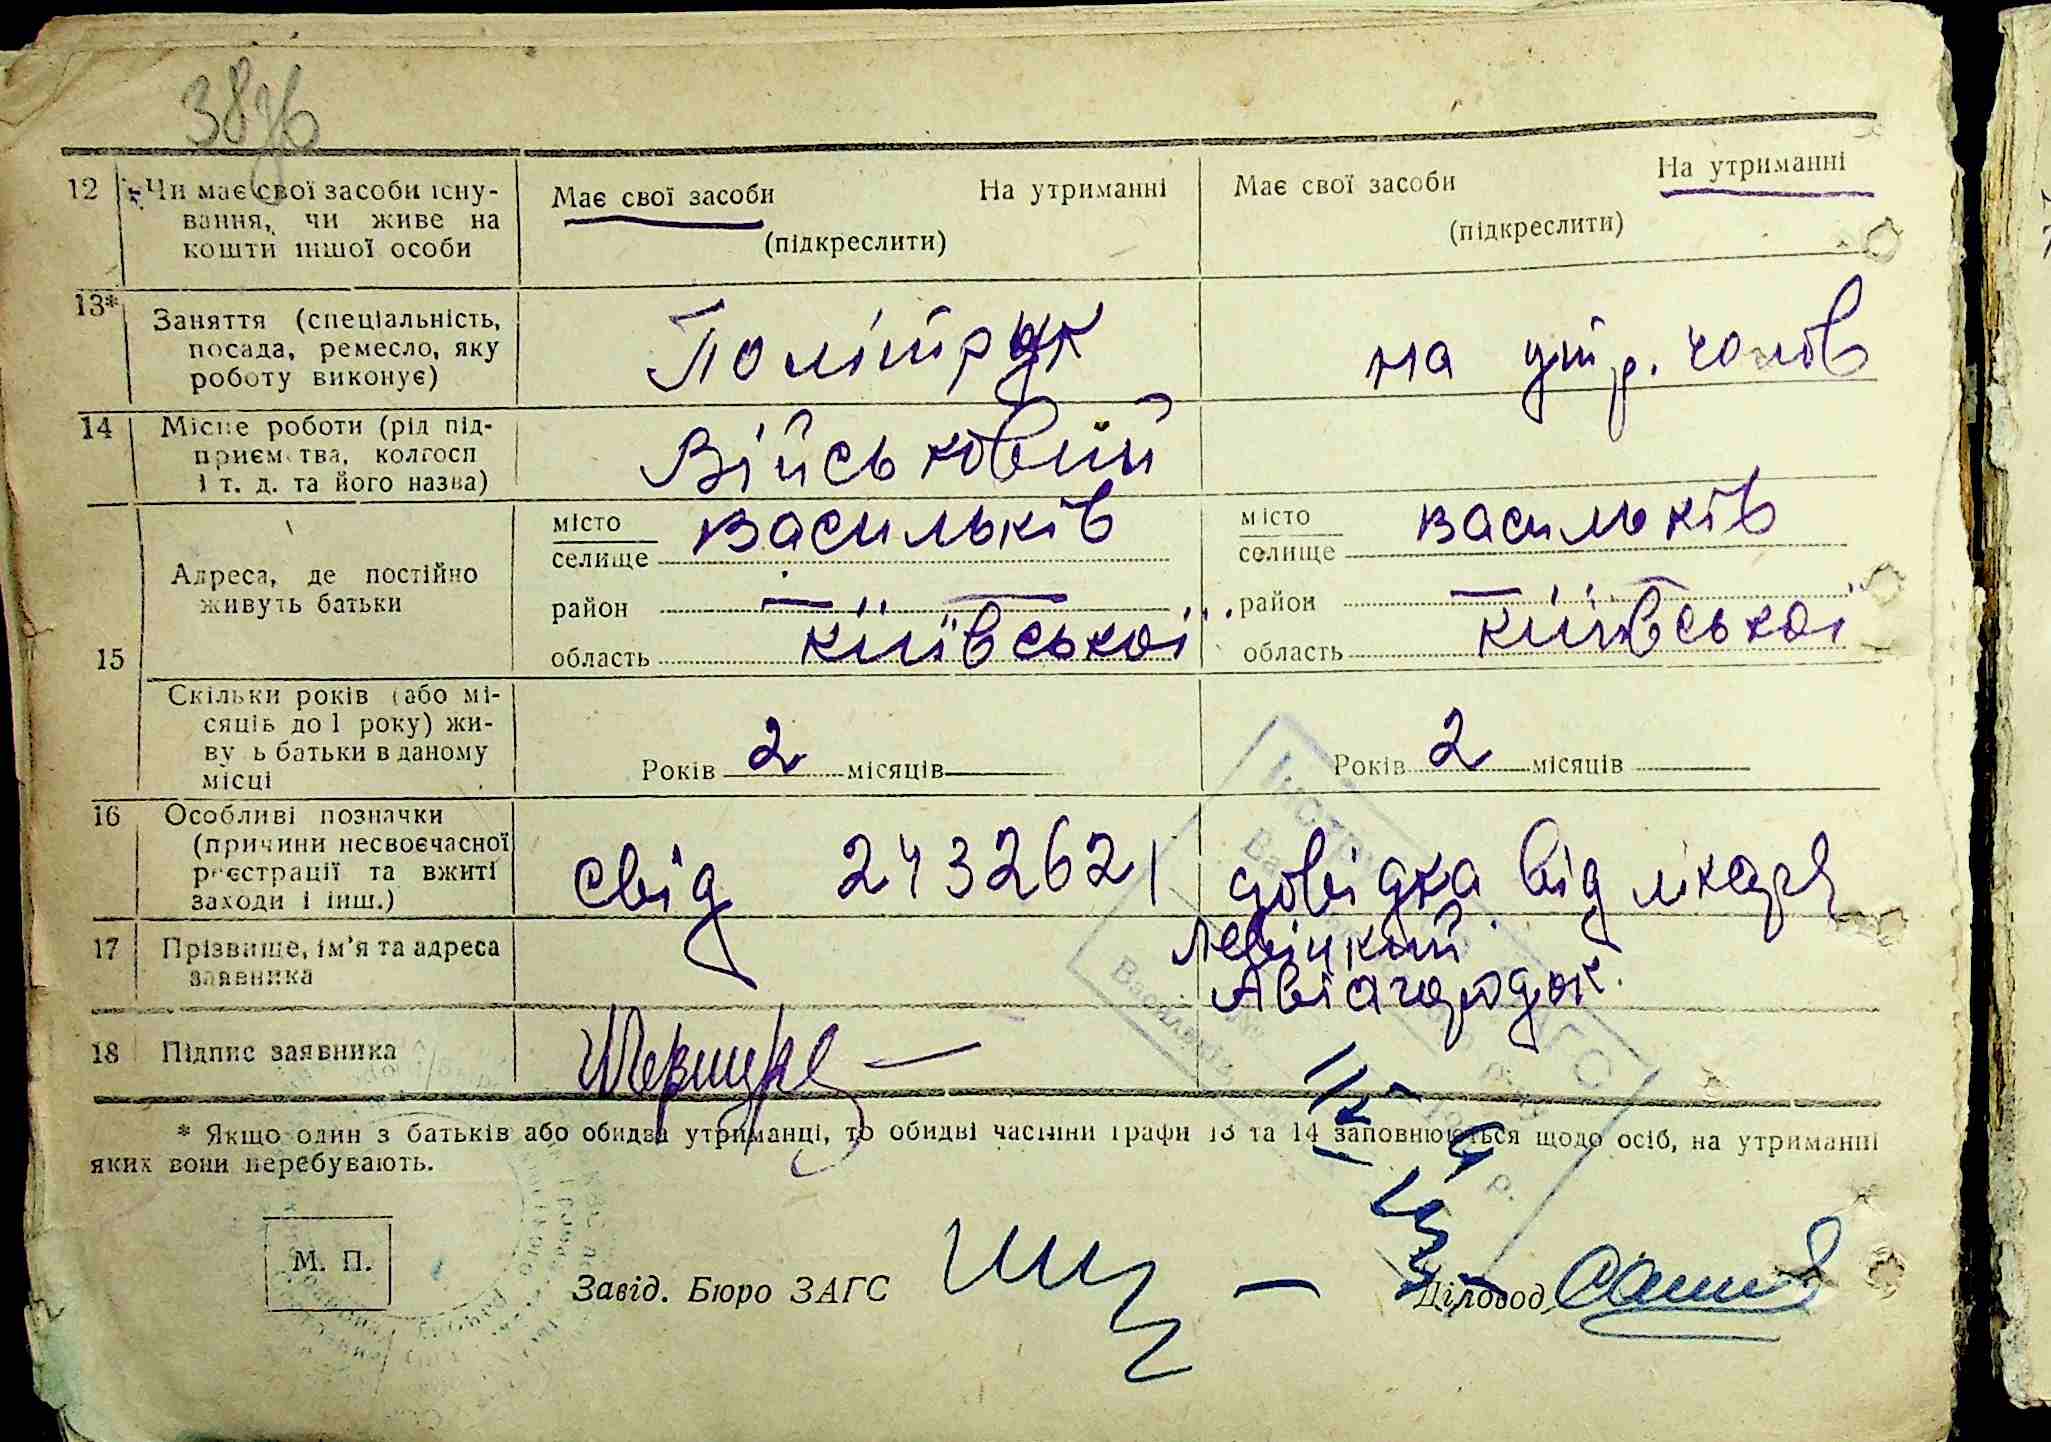 38зв
12 Чи має свої засоби існу- Має свої засоби На утриманні Має свої засоби На утриманні
вання, чи живе на (підкреслити) (підкреслити)
кошти іншої особи
13* Заняття (спеціальність, Політрук на утр. чолов
посада, ремесло, яку
роботу виконує)
14 Місце роботи (рід під- Військовий
приємства, колгосп
і т. д. та його назва)
15 Адреса, де постійно
живуть батьки
місто Васильків місто Васильків
селище селище
район — — район —
область київської область київської
Скільки років (або мі-
сяців до 1 року) жи-
вуть батьки в даному Років 2 місяців Років 2 місяців
місці
16 Особливі позначки
(причини несвоєчасної
реєстрації та вжиті свід 2432621 довідка від лікаря
заходи і інш.)
17 Прізвище, ім'я та адреса Левіцкий
заявника Авіагородок.
18 Підпис заявника
* Якщо один з батьків або обидва утриманці, то обидві частини графи 13 та 14 заповнюються щодо осіб, на утриманні
яких вони перебувають.
М. П.
Завід. Бюро ЗАГС Діловод